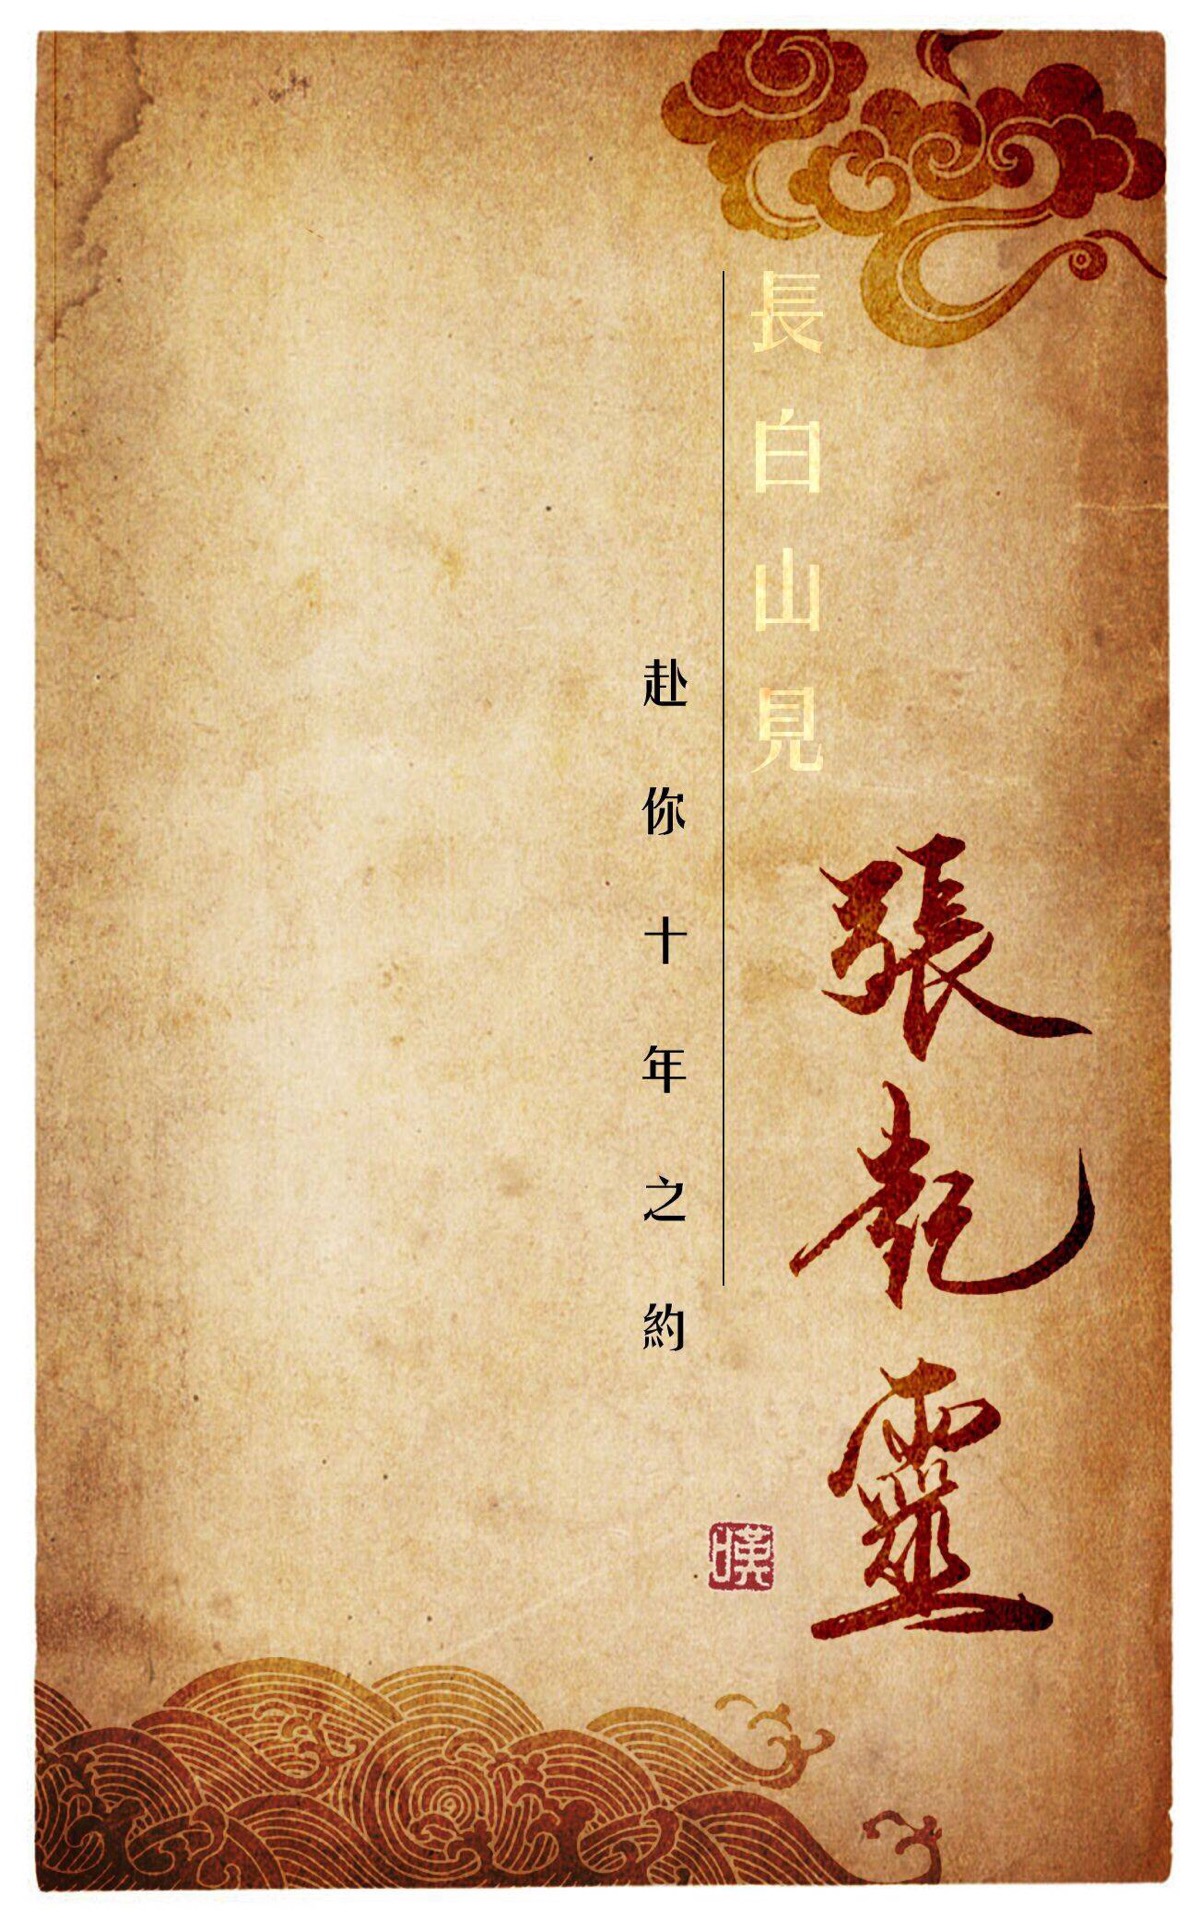 長白山見
張起靈
赴你十年之約